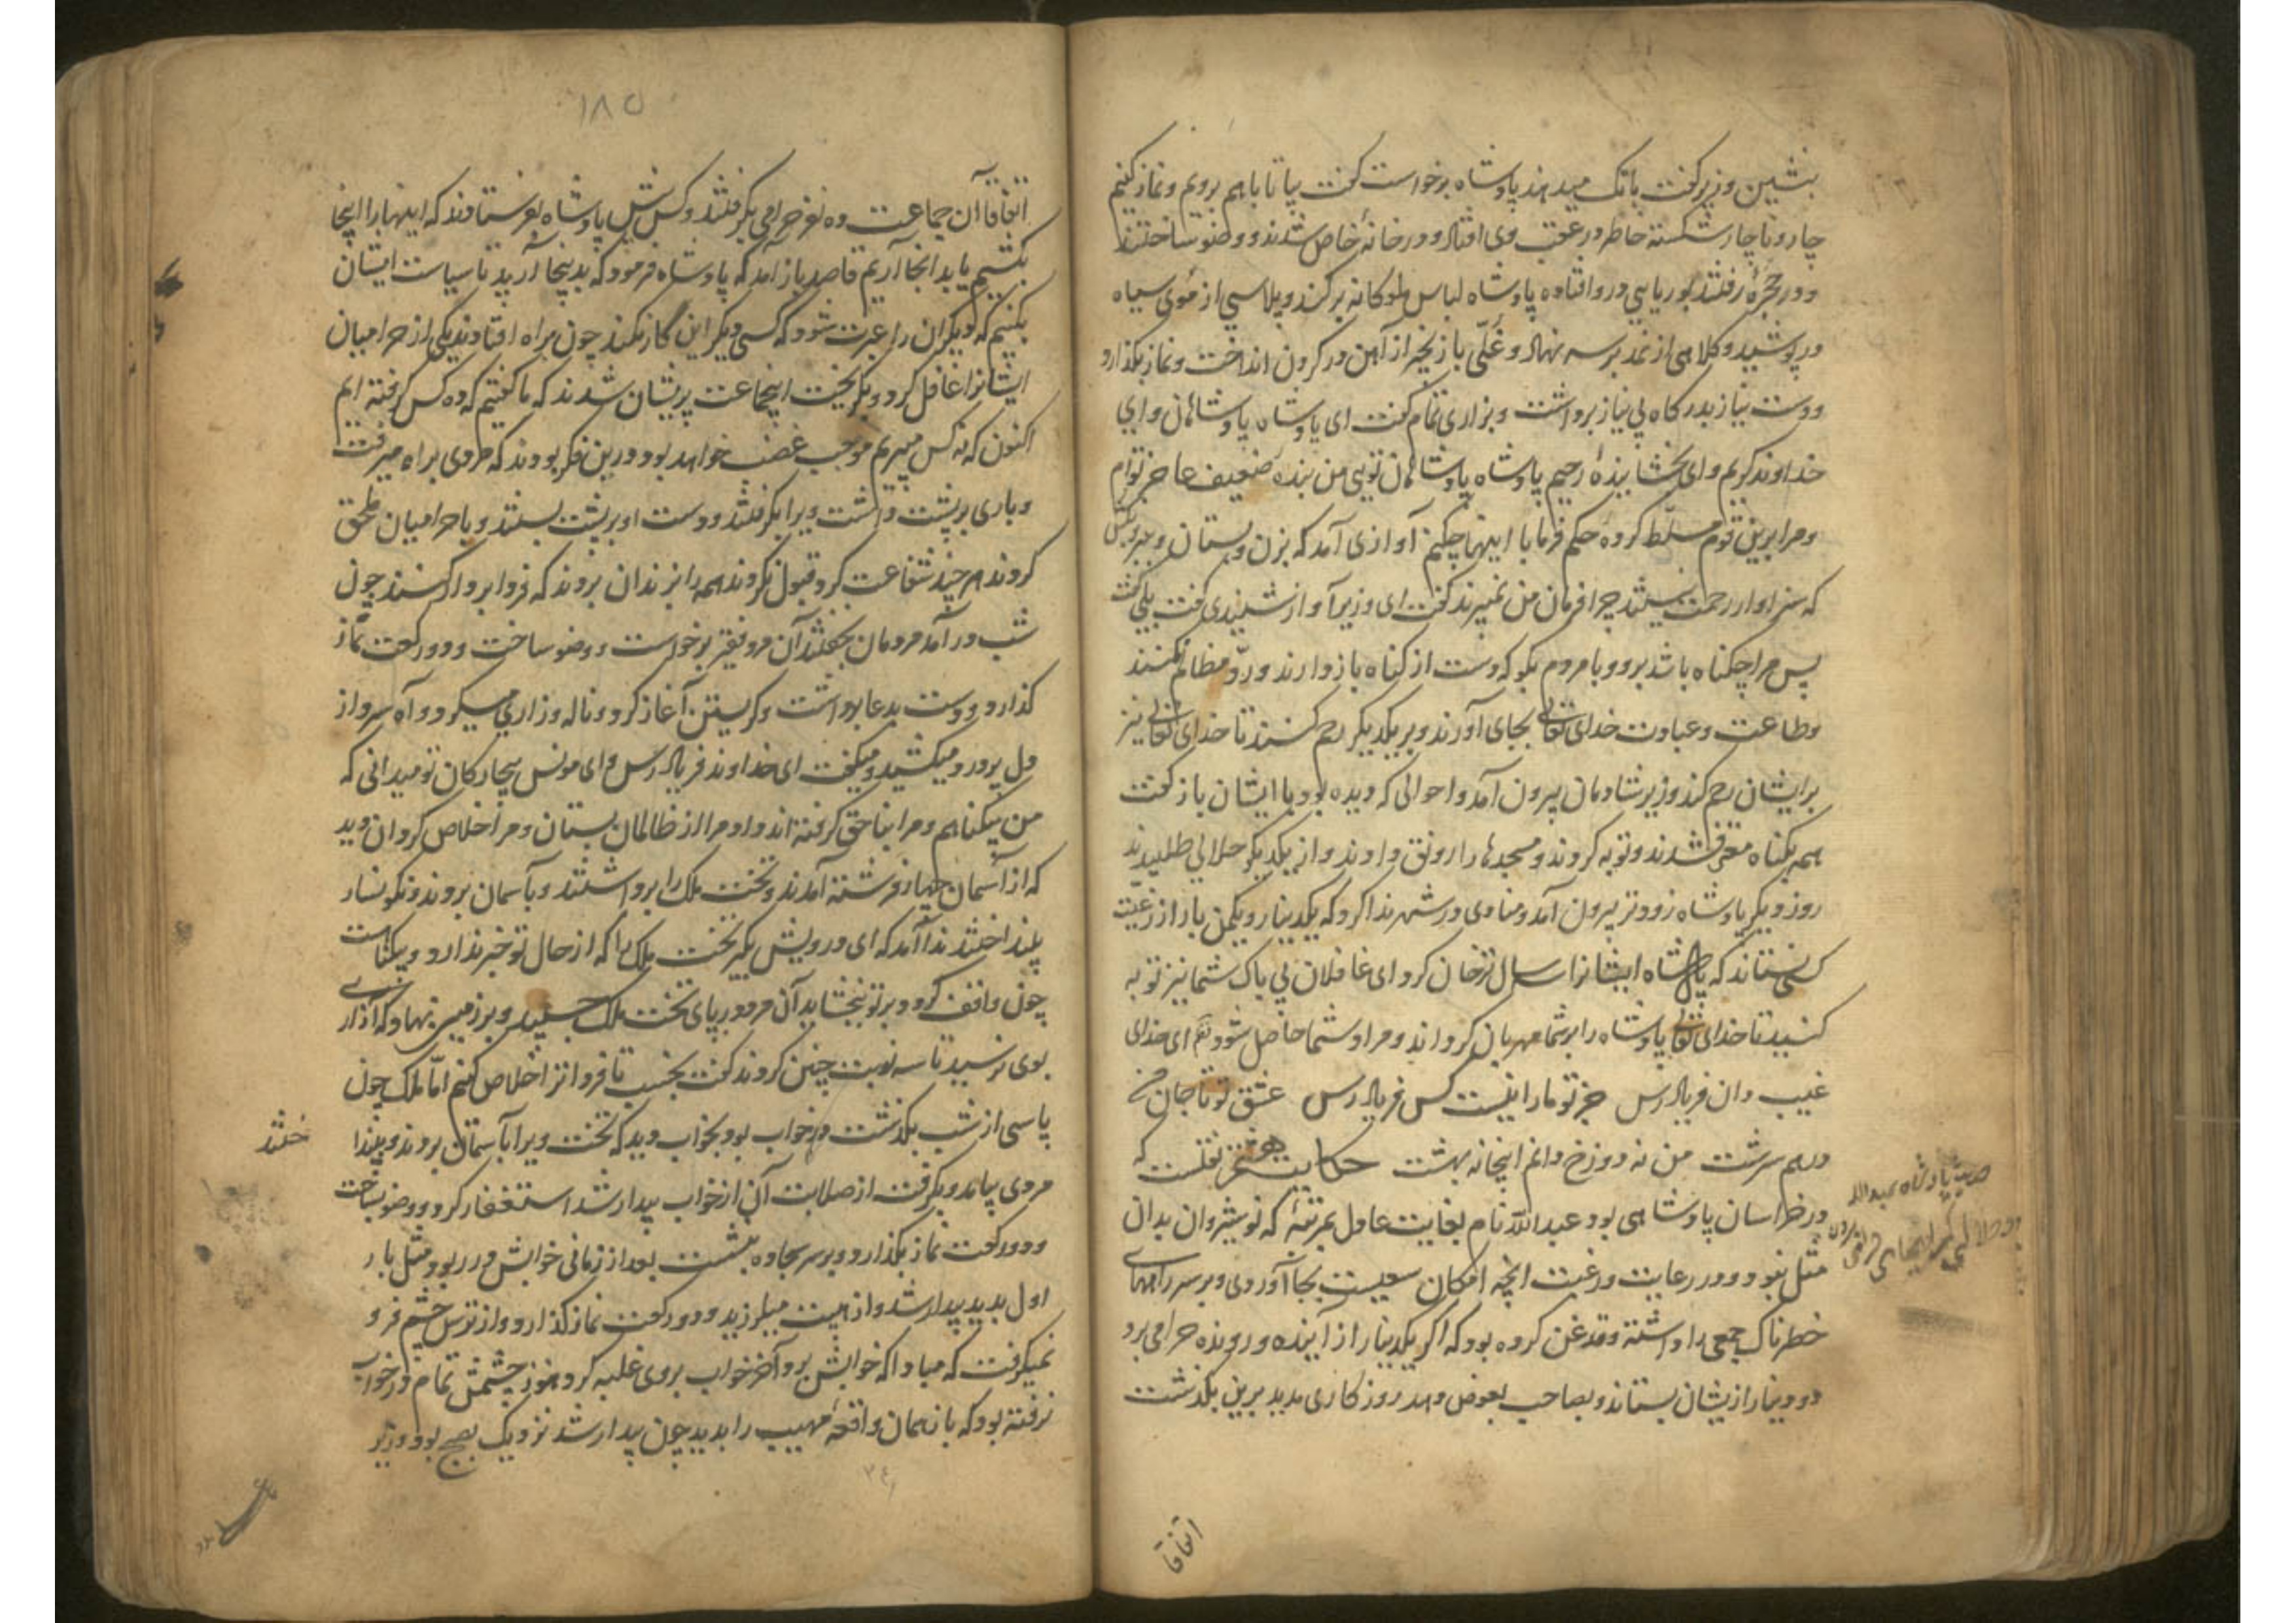 بنشین وزیر گفت بانک میدهند پادشاه برخواست گفت بیا تا باهم رویم و نماز کنیم
چار و ناچار شکسته خاطر در عقب وی افتاد و در خانهٔ خاص شدند و وضو ساختند
و در حجره رفتند بوریایی در و افتاده پادشاه لباس ملوکانه برکند و پلاسی از موی سیاه
در پوشید و کلاهی از نمد بر سر نهاد و غلّی با زنجیر از آهن در گردن انداخت و نماز بگذارد
و دست نیاز بدرگاه بی نیاز برداشت و بزاری تمام گفت ای پادشاه پادشاهان و ای
خداوند کریم و ای بخشاینده رحیم پادشاه پادشاهان تویی من بنده ضعیف عاجز توام
و مرا برین قوم مسلّط کرده حکم فرما با اینها چکنم آوازی آمد که بزن و بستان و ببر و بکش
که سزاوار رحمت نیستند چرا فرمان من نمیبرند گفت ای وزیر آواز شنیدی گفت بلی گفت
پس مرا چکناه باشد برو و با مردم بکو که دست از کناه باز دارند و ردّ مظالم کنند
و طاعت و عبادت خدای تعالی بجای آورند و بر یکدیکر رحم کنند تا خدای تعالی نیز
بر ایشان رحم کند وزیر شادمان بیرون آمد و احوالی که دیده بود با ایشان باز گفت
همه بکناه معترف شدند و توبه کردند و مسجدها را رونق دادند و از یکدیکر حلالی طلبیدند
روز دیکر پادشاه زودتر بیرون آمد و منادی در شهر ندا کرد که یکدینار و یکمن بار از رعیّت
کس نستاند که پادشاه ایشانرا سال ترخان کرد ای غافلان بی باک شما نیز توبه
کنید تا خدای تعالی پادشاه را بر شما مهربان کرداند و مراد شما حاصل شود نظم ای خدای
غیب دان فریاد رس جز تو ما را نیست کس فریاد رس عشق تو تا جان من
درهم سرشت من نه دوزخ دانم اینجا نه بهشت حکایت نقلست که
در خراسان پادشاهی بود عبدالله نام بغایت عادل بمرتبهٔ که نوشیروان بدان
مثل نبود و در رعایت رعیت انچه امکان سعیست بجا آوردی و بر سر راههای
خطرناک جمعی را داشته و قدغن کرده بود که اکر یکدینار از آینده و رونده حرامی برد
دو دینار ازیشان بستاند و بصاحب بعوض دهد روزکاری مدید برین بکذشت
اتفاقا
اتفاقا آن جماعت ده نفر حرامی بگرفتند و کس پیش پادشاه بفرستادند که اینها را اینجا
بکشیم یا بدانجا آریم قاصد باز آمد که پادشاه فرمود که بدینجا آرید تا سیاست ایشان
بکنیم که دیکران را عبرت شود که کسی دیکر این کار نکند چون براه افتادند یکی از حرامیان
ایشانرا غافل کرد و بگریخت اینجماعت پریشان شدند که ما گفتیم که ده کس گرفته ایم
اکنون که نه کس میبریم موجب غضب خواهد بود درین فکر بودند که مردی براه میرفت
و باری بر پشت داشت ویرا بگرفتند و دست او بر پشت بستند و با حرامیان ملحق
کردند هرچند شفاعت کرد قبول نکردند همه را بزندان بردند که فردا بر دار کنند چون
شب در آمد مردمان بخفتند آن مرد فقیر برخواست و وضو ساخت و دو رکعت نماز
کذارد و دست بدعا برداشت و گریستن آغاز کرد و ناله و زاری میکرد و آه سرد از
دل پر درد میکشید و میکفت ای خداوند فریاد رس و ای مونس بیچارکان تو میدانی که
من بیکناهم و مرا بناحق گرفته اند داد مرا از ظالمان بستان و مرا خلاص کردان دید
که از آسمان چهار فرشته آمدند و تخت ملک را برداشتند و بآسمان بردند و نکونسار
بینداختند ندا آمد که ای درویش بگیر تخت ملک را که از حال تو خبر ندارد و بیکناهست
چون واقف گردد بر تو ببخشاید آن مرد در پای تخت ملک جسبید و بر زمین نهاد که آزاری
بوی نرسید تا سه نوبت چنین کردند گفت بخسب تا فردا ترا خلاص کنیم امّا ملک چون
پاسی از شب بکذشت در خواب بود بخواب دید که تخت ویرا بآسمان بردند و بیندا
ختند
مردی بیامد و بگرفت از صلابت آن از خواب بیدار شد استغفار کرد و وضو بساخت
و دو رکعت نماز بکذارد و بر سر سجاده بنشست بعد از زمانی خوابش در ربود مثل بار
اول بدید بیدار شد و از هیبت میلرزید و دو رکعت نماز کذارد و از ترس چشم فرو
نمیگرفت که مبادا که خوابش برد آخر خواب بر وی غلبه کرد هنوز چشمش تمام در خواب
نرفته بود که باز همان واقعهٔ مهیب را بدید چون بیدار شد نزدیک بصبح بود وزیر